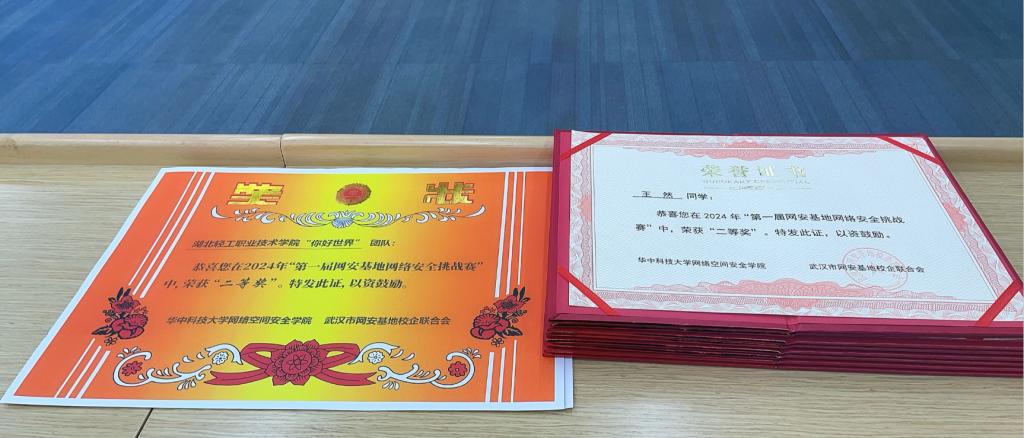 奖状
湖北轻工职业技术学院“你好世界” 团队:
恭喜您在2024年“第一届网安基地网络安全挑战赛”
中,荣获“二等奖”。特发此证,以资鼓励。
华中科技大学网络空间安全学院 武汉市网安基地校企联合会
荣誉证书
王 然 同学:
恭喜您在 2024 年“第一届网安基地网络安全挑战
赛”中,荣获“二等奖”。特发此证,以资鼓励。
华中科技大学网络空间安全学院 武汉市网安基地校企联合会